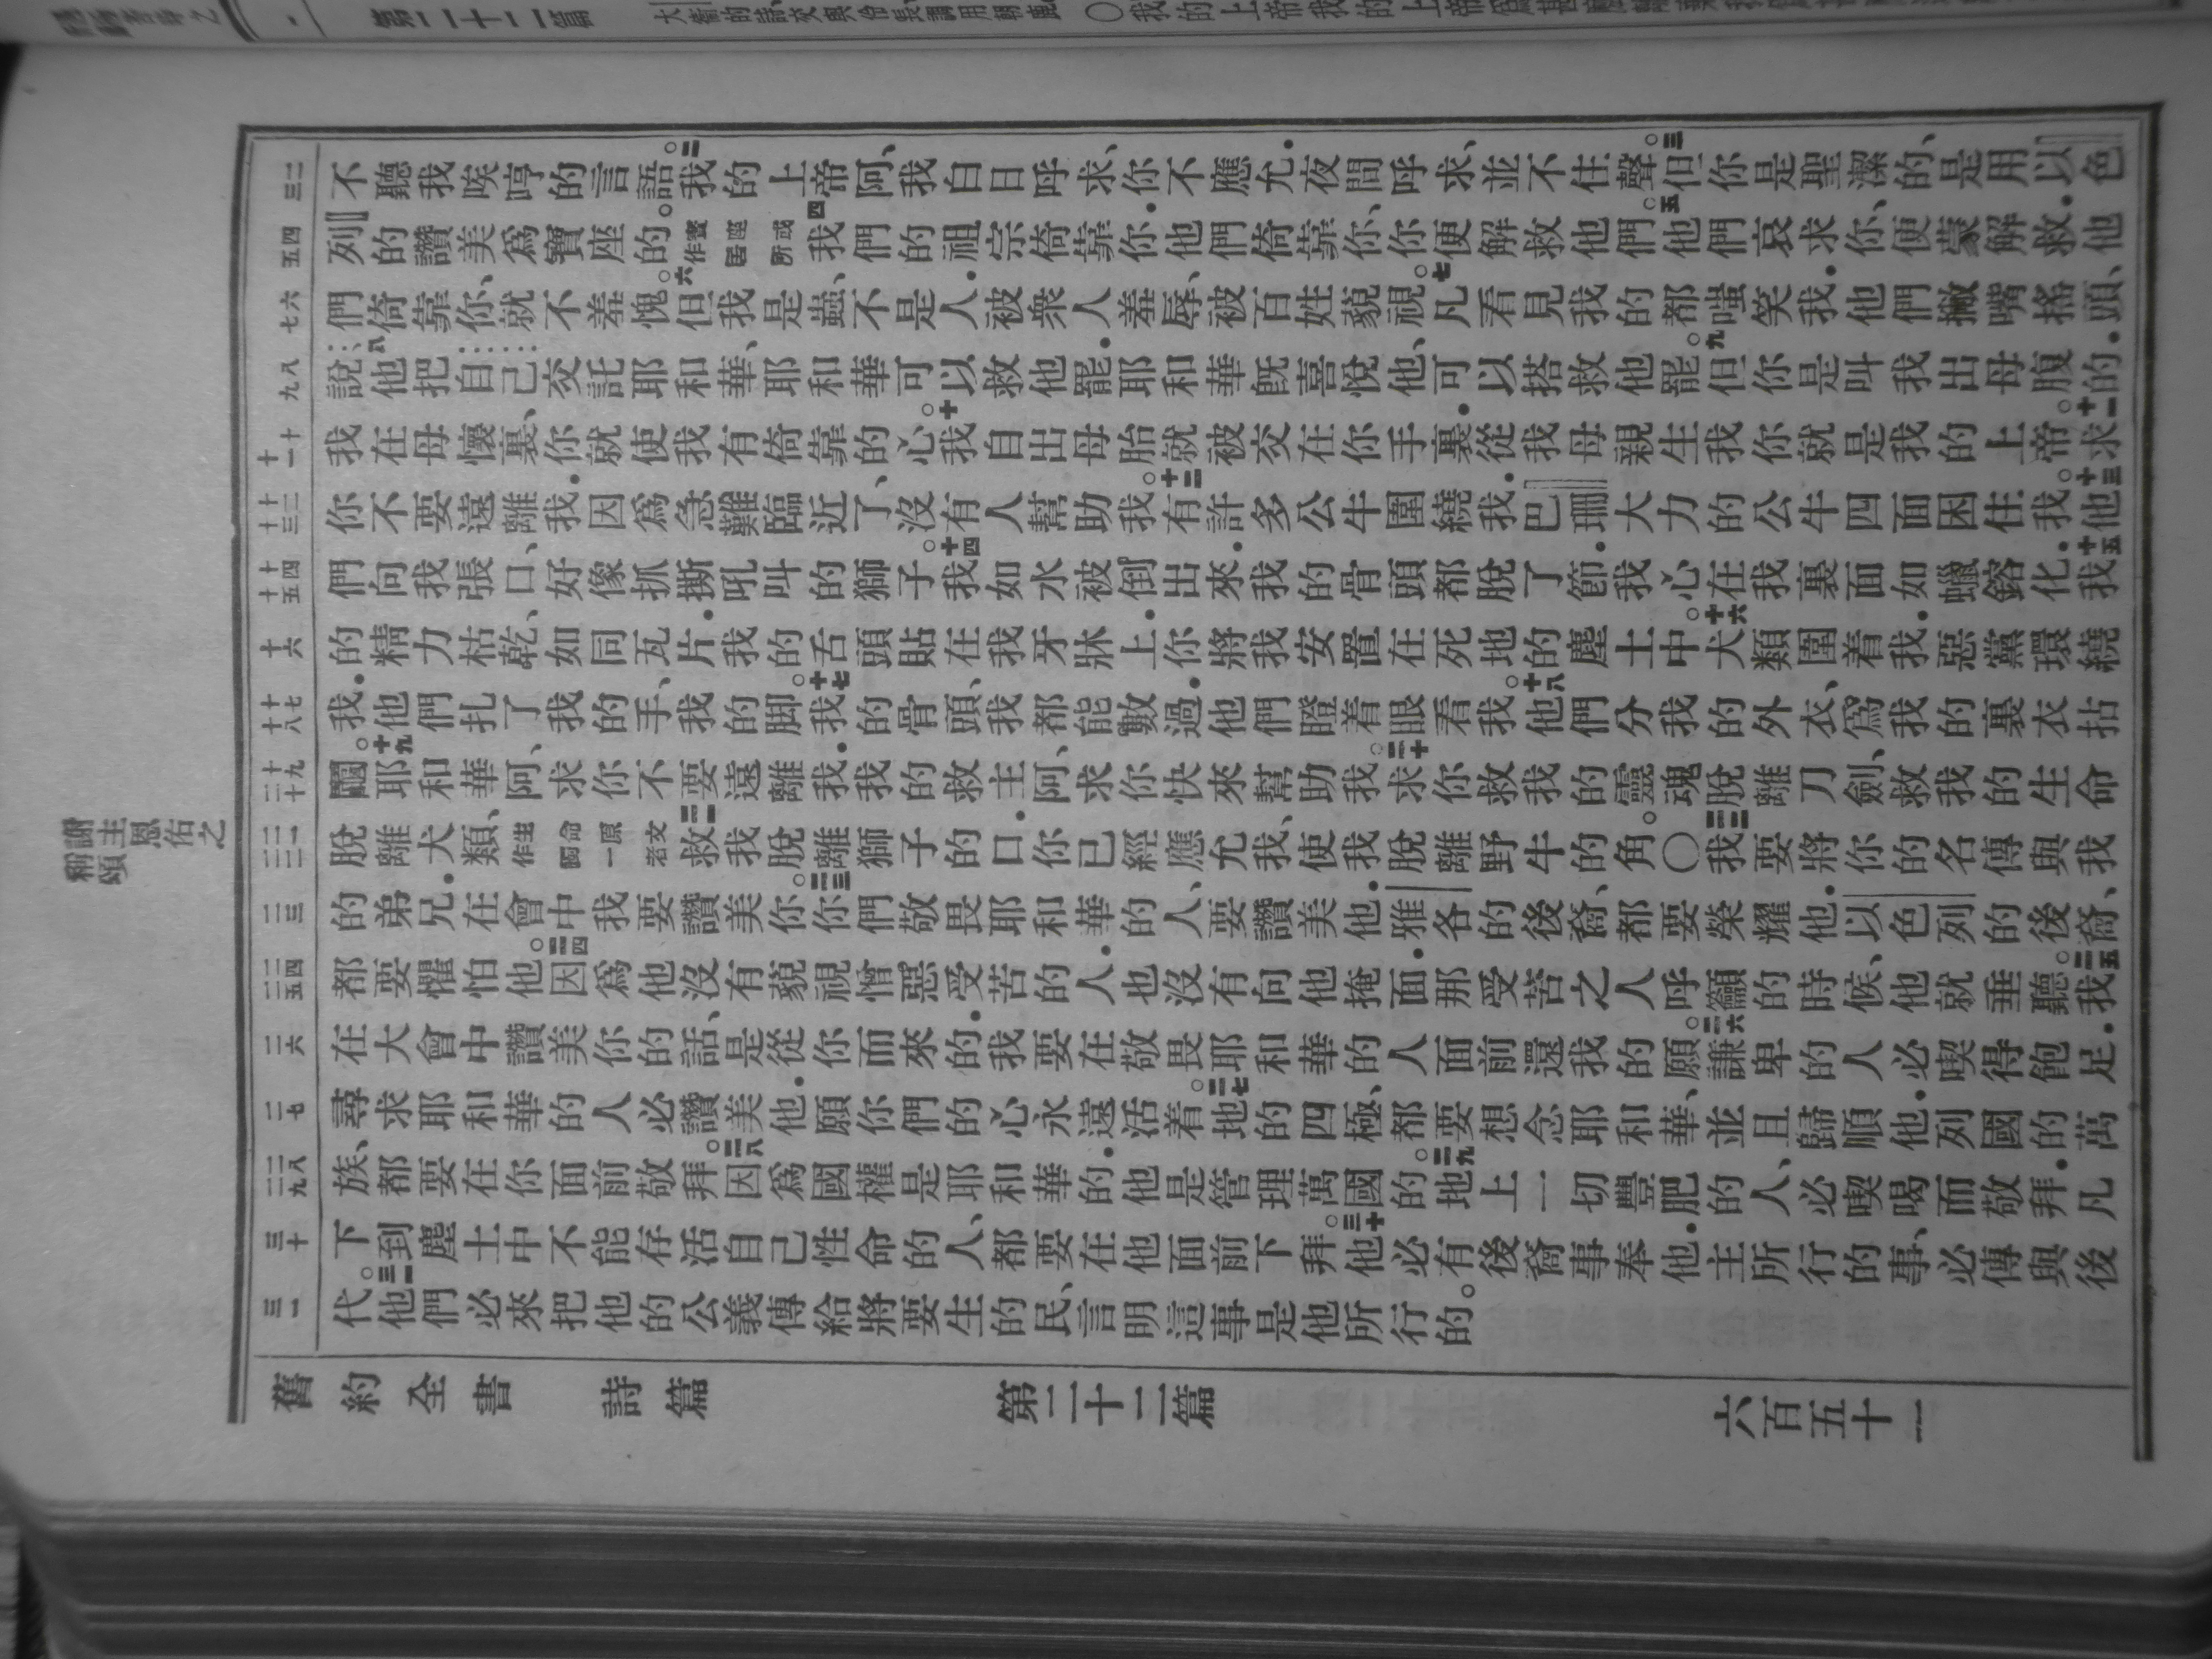 謝主恩佑之
稱頌
二
三
不聽我唉哼的言語。二我的上帝阿、我白日呼求、你不應允.夜間呼求、並不住聲。三但你是聖潔的、是用以色
四
五
列的讚美爲寶座的。寶座或作居所四我們的祖宗倚靠你.他們倚靠你、你便解救他們。五他們哀求你、便蒙解救.他
六
七
們倚靠你、就不羞愧。六但我是蟲、不是人.被衆人羞辱、被百姓藐視。七凡看見我的都嗤笑我.他們撇嘴搖頭、
八
九
說八他把自己交託耶和華、耶和華可以救他罷.耶和華旣喜悅他、可以搭救他罷。九但你是叫我出母腹的.
十
十一
我在母懷裏、你就使我有倚靠的心。十我自出母胎就被交在你手裏.從我母親生我你就是我的上帝。十一求
十二
十三
你不要遠離我.因爲急難臨近了、沒有人幫助我。十二有許多公牛圍繞我.巴珊大力的公牛四面困住我。十三他
十四
十五
們向我張口、好像抓撕吼叫的獅子。十四我如水被倒出來.我的骨頭都脫了節.我心在我裏面如蠟鎔化.十五我
十六
的精力枯乾、如同瓦片.我的舌頭貼在我牙牀上.你將我安置在死地的塵土中。十六犬類圍着我.惡黨環繞
十七
十八
我.他們扎了我的手、我的脚。十七我的骨頭、我都能數過.他們瞪着眼看我。十八他們分我的外衣、爲我的裏衣拈
十九
二十
鬮。十九耶和華阿、求你不要遠離我.我的救主阿、求你快來幫助我。二十求你救我的靈魂脫離刀劍、救我的生命
二一
二二
脫離犬類、生命原文作獨一者二一救我脫離獅子的口.你已經應允我、使我脫離野牛的角。○二二我要將你的名傳與我
二三
的弟兄.在會中我要讚美你。二三你們敬畏耶和華的人、要讚美他.雅各的後裔、都要榮耀他.以色列的後裔、
二四
二五
都要懼怕他。二四因爲他沒有藐視憎惡受苦的人.也沒有向他掩面.那受苦之人呼籲的時候、他就垂聽。二五我
二六
在大會中讚美你的話、是從你而來的.我要在敬畏耶和華的人面前還我的願。二六謙卑的人必喫得飽足.
二七
尋求耶和華的人必讚美他.願你們的心永遠活着。二七地的四極、都要想念耶和華、並且歸順他.列國的萬
二八
二九
族、都要在你面前敬拜。二八因爲國權是耶和華的.他是管理萬國的。二九地上一切豐肥的人、必喫喝而敬拜.凡
三十
下到塵土中不能存活自己性命的人、都要在他面前下拜。三十他必有後裔事奉他.主所行的事、必傳與後
三一
代。三一他們必來把他的公義傳給將要生的民、言明這事是他所行的。
舊約全書 詩篇 第二十二篇 六百五十一